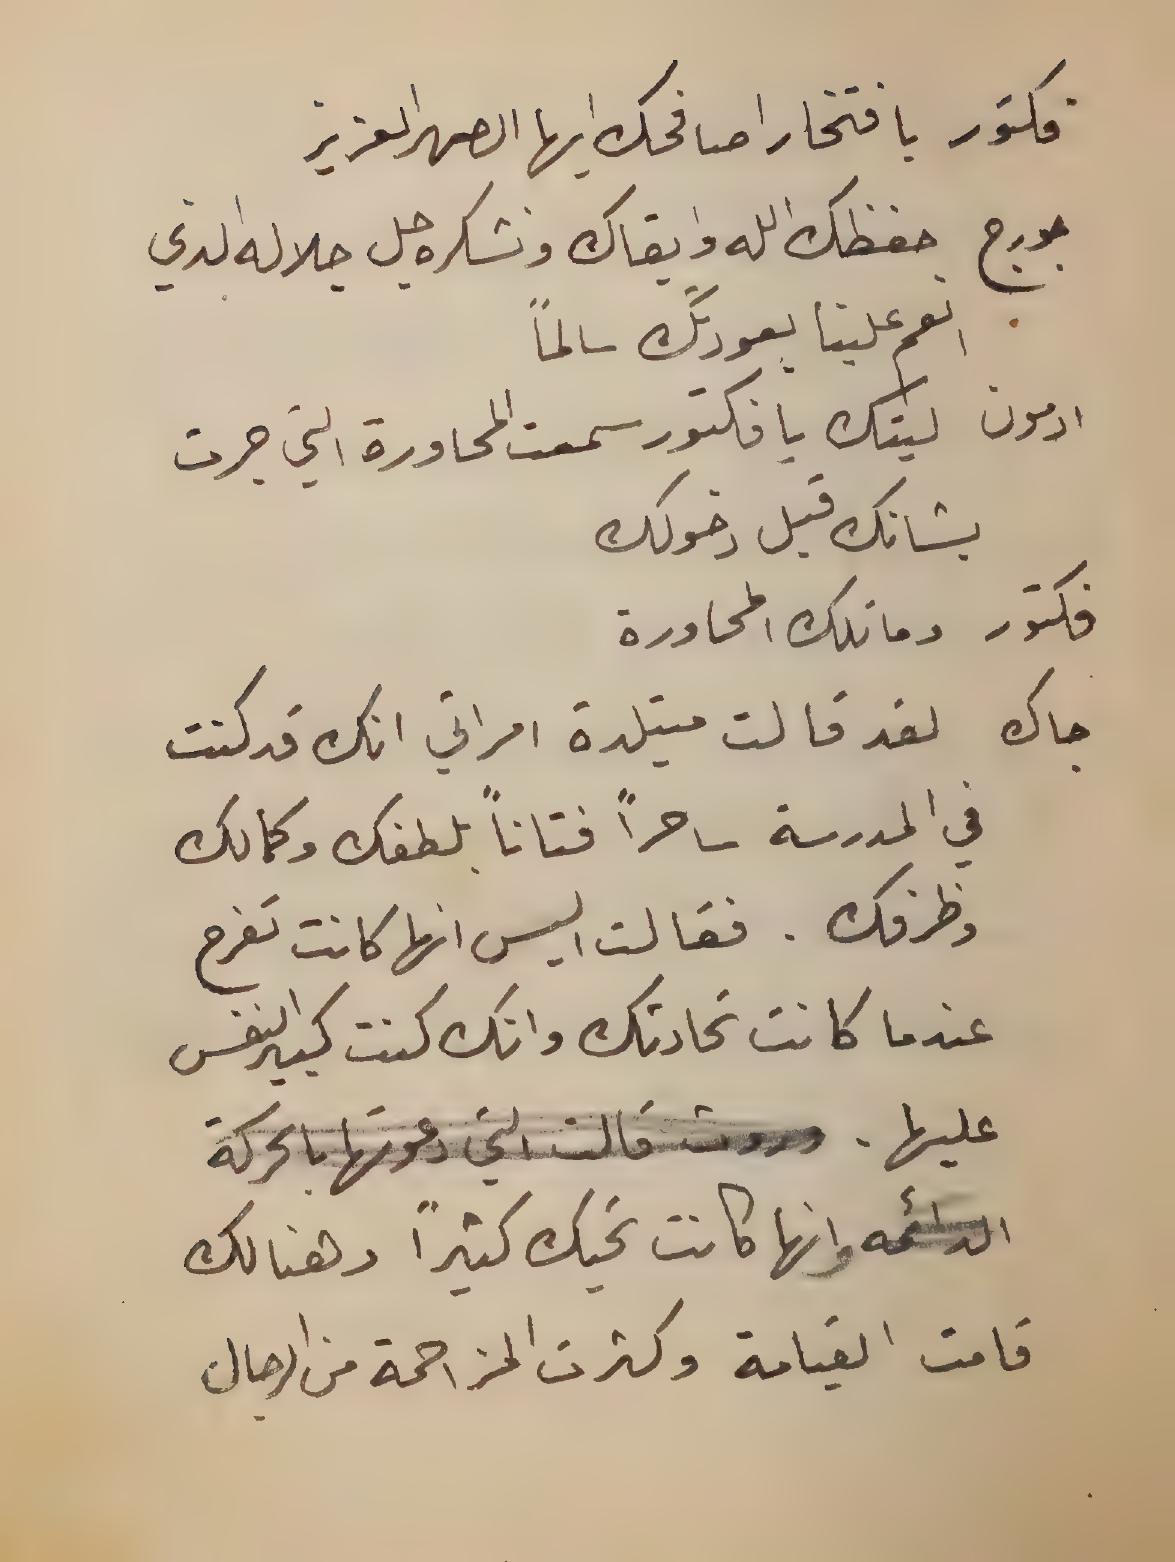 فكتور يا فتخار اصافحك ايها الصهر العزيز
جورج حفظك الله وابقاك ونشكره جل جلاله الذي
انعم علينا بعودتك سالماً
ادمون ليتك يا فكتور سمعت المحاورة التي جرت
بشانك قبل دخولك
فكتور وما تلك المحاورة
جاك لقد قالت ميتلدة امراتي انك قد كنت
في المدرسة ساحراً فتاناً بلطفك وكمالك
وظرفك . فقالت اليس انها كانت تفرح
عندما كانت تحادثك وانك كنت كبير النفس
عليها . وروت قالت التي دعوتها بالحركة
الدائمه وانها كانت تحبك كثيراً وهنالك
قامت القيامة وكثرت المزاحمة من الرجال